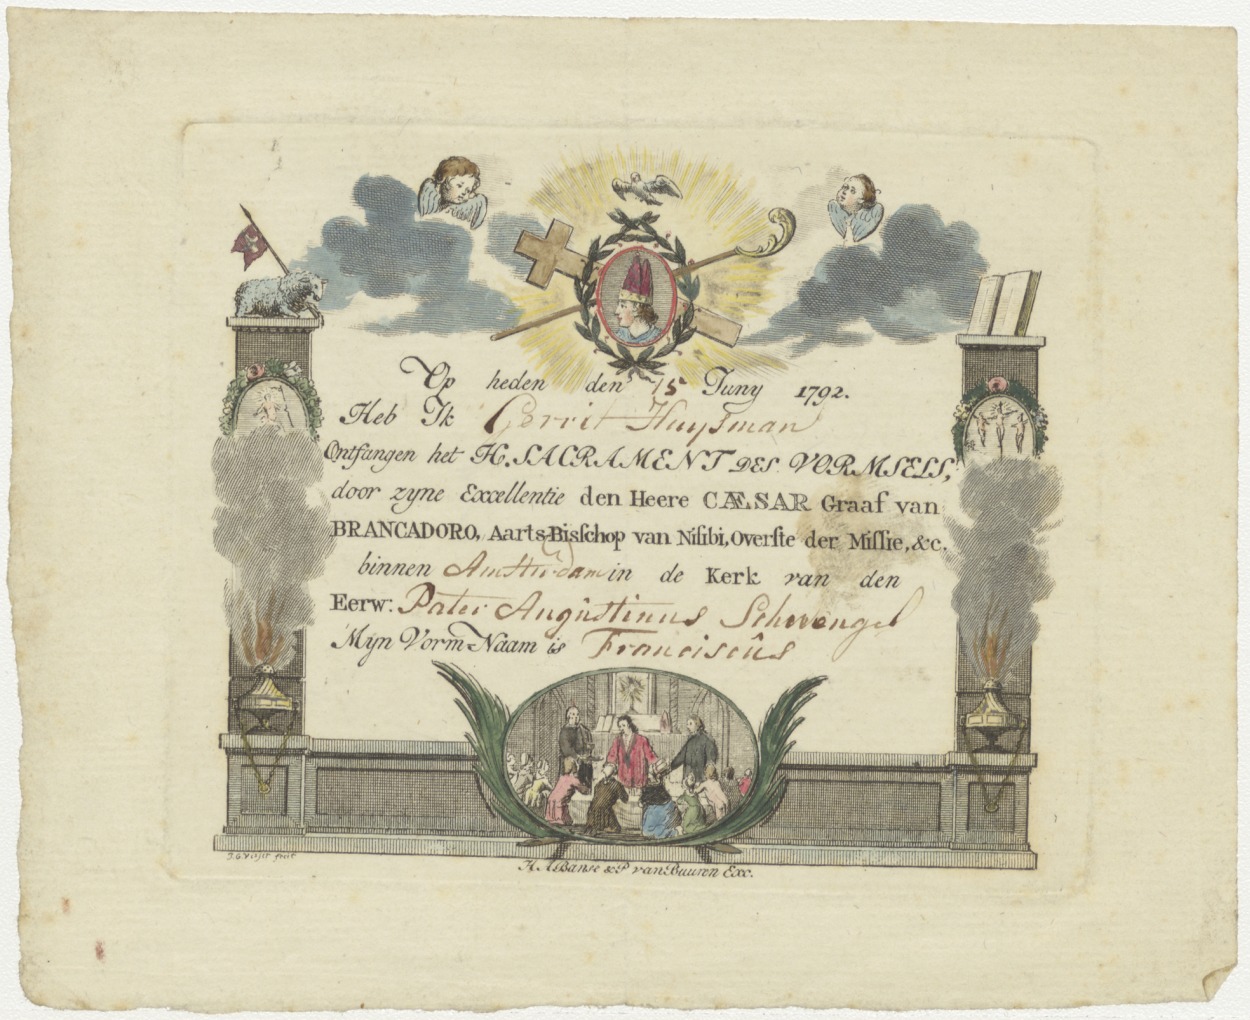 Op heden den 15 Juny 1792.
Heb Ik Gerrit Huysman
Ontfangen het H. SACRAMENT DES VORMSELS,
door zyne Excellentie den Heere CÆSAR Graaf van
BRANCADORO, Aarts-Bisſchop van Niſibi, Overſte der Miſſie, &c.
binnen Amsterdam in de Kerk van den
Eerw: Pater Augûstinus Schwengel
Mijn Vorm-Naam is Franciscûs
fecit
H. A Banse & P van Buuren Exc.